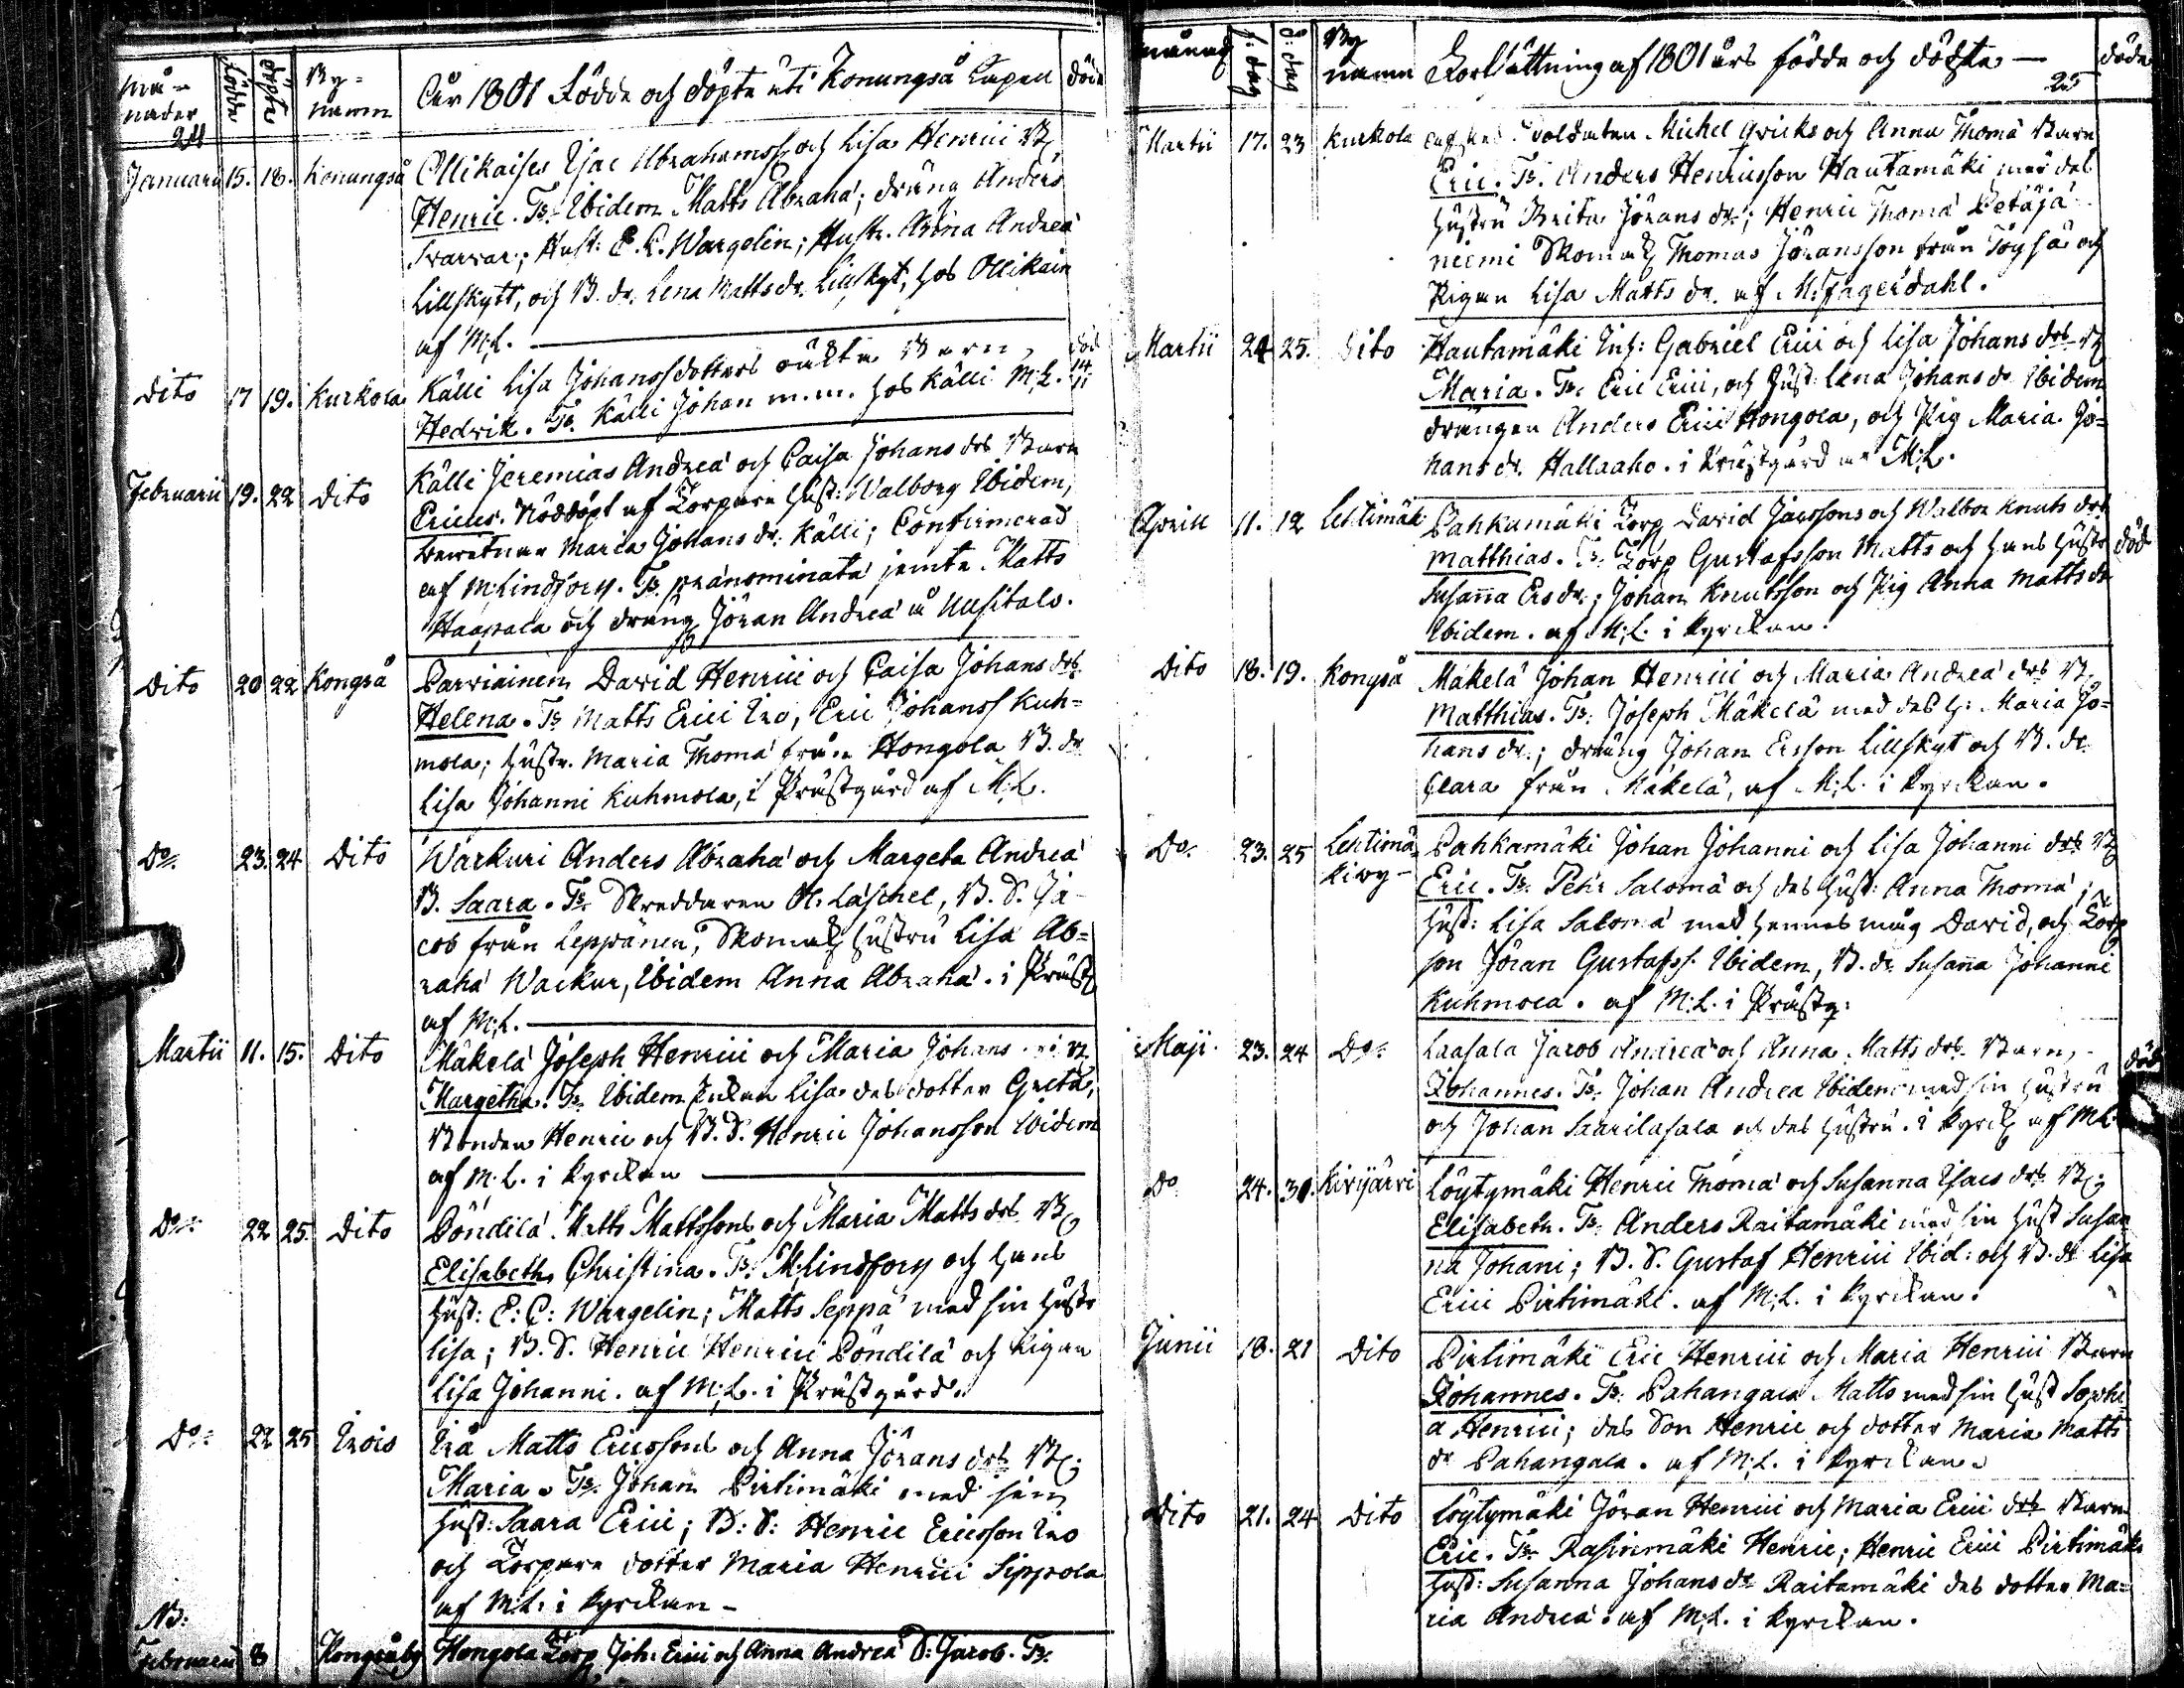 Må-
nader
24
Födde
Döpte
By-
namn
År 1801 Födde och döpte uti Konungså Capell
döde
Januarii 15. 18. Konungså Ollikaises Isac Abrahamss. och Lisa Henrici B.
Henric. Ts. Ibidem Matts Abrahã; dräng Anders
Svarvar; Hust: E. C. Wargelin; Hustr. Anna Andreã
Lillskytt, och B. dr. Lena Mattsdr. Lillskyt, hos Ollikain
af M:L.
Dito 17 19. Kurkola Källi Lisa Johanssdotters oäkta Barn,
Hedvik. Ts. Källi Johan m.m. hos Källi M:L. död 14/11
Februarii 19. 22 Dito Källi Jeremias Andreã och Caisa Johans drs Barn
Ericus. Nöddöpt af Torpare Hust: Walborg Ibidem,
Maria Johans dr. Källi; Confirmerad
af M:Lindforss. Ts. prænominatã jemte Matts
Haapala och dräng Jöran Andreã å Uusitalo.
Dito 20 22 Kongså Parviainen David Henrici och Caisa Johans drs
Helena. Ts. Matts Erici Iro, Eric Johanss Kuh-
mola; Hustr. Maria Thomã från Hongola B. dr
Lisa Johanni Kuhmola, i Prästgård af M:L.
Do 23. 24 Dito Warkuri Anders Abrahã och Margeta Andreã
B. Saara. Ts. Skreddaren Ol. Laschel, B. S. Ja-
cob från Leppänen, Skomak hustru Lisa Ab-
rahã Warkur, Ibidem Anna Abrahã. i Präst
af M:L.
Martii 11. 15. Dito Mäkelä Joseph Henrici och Maria Johans B.
Margetha. Ts. Ibidem Enkan Lisa des dotter Greta,
Bonden Henric och B. S. Henric Johansson Ibidem
af M:L. i Kyrckan
Do 22 25. Dito Pöndilä Matts Mattssons och Maria Matts drs B.
Elisabeth Christina. Ts. M:Lindforss och hans
Hust: E: C: Wargelin; Matts Seppä med sin Hustr
Lisa; B. S. Henric Henrici Pöndilä och Pigan
Lisa Johanni. af M:L. i Prästgård.
Do 22 25 Irois Irå Matts Ericssons och Anna Jörans drs B.
Maria. Ts. Johan Pirtimäki med sin
Hust: Saara Erici; B: S: Henric Ericsson Iro
och Torpare dotter Maria Henrici Sippola
af M:L. i Kyrckan
NB:
Februarii 8 Kongsåby Hongola Torp Joh. Erici och Anna Andreã S: Jacob. Ts.
Månad
f: dag
d: dag
By
namn
Fortsättning af 1801 års födde och döpte
25
döde
Martii 17. 23 Kurkola Soldaten Michel Qvicks och Anna Thomã Barn
Eric. Ts. Anders Henricsson Hautamäki med des
hustru Brita Jörans dr; Henric Thomã Petäjä-
niemi Skomak Thomas Jöransson från Töysä och
Pigan Lisa Matts dr. af M:Fagerdahl.
Martii 24 25. Dito Hautamäki Inh: Gabriel Erici och Lisa Johans drs B
Maria. Ts. Eric Erici, och Hust. Lena Johans dr Ibidem
drängen Anders Erici Hongola, och Pig Maria Jo-
hans dr. Hallaaho. i Prästgård af M:L.
Aprill 11. 12 Lehtimäk Pahkamäki Torp David Jacssons och Walbor Knuts drs
Matthias. Ts. Torp Gustafsson Matts och hans Hustr
Susaña Ersdr; Johan Knutsson och Pig Anna Matts dr
Ibidem. af M:L. i Kyrckan.
död
Dito 18. 19. Kongså Mäkelä Johan Henrici och Maria Andreã drs B.
Matthias. Ts. Joseph Mäkelä med des h: Maria Jo-
hans dr; dräng Johan Ersson Lillskyt och B. dr.
Clara från Mäkelä, af M:L. i Kyrckan.
Do 23. 25 Lehtimä-
kiby Pahkamäki Johan Johanni och Lisa Johanni drs B
Eric. Ts. Pehr Salomã och des Hust: Anna Thomã;
Hust: Lisa Salomã med hennes måg David, och Torp
son Jöran Gustafss. Ibidem, B. dr. Susaña Johanni
Kuhmola. af M:L. i Prästg:
Maji 23. 24 Do Laasala Jacob Andreã och Anna Matts drs Barn,
Johannes. Ts. Johan Andrea Ibidem med sin hustru
och Johan Saarilasala och des hustru. i Kyrck af M:L.
död
Do 24. 30. Kivijärvi Löytymäki Henric Thomã och Susanna Isacs drs B.
Elisabeth. Ts. Anders Raitamäki med sin Hust Susan
na Johani; B. S. Gustaf Henrici Ibid: och B. dr Lisa
Erici Pirtimäki. af M:L. i Kyrckan.
Junii 18. 21 Dito Pirtimäki Eric Henrici och Maria Henrici Barn
Johannes. Ts. Pahangala Matts med sin Hust Sophi-
a Henrici; des Son Henric och dotter Maria Matts
dr Pahangala. af M:L. i Kyrckan.
Dito 21. 24 Dito Löytymäki Jöran Henrici och Maria Erici drs Barn
Eric. Ts. Rasinmäki Henric; Henric Erici Pirtimäki
Hust: Susanna Johans dr Raitamäki des dotter Ma-
ria Andreã. af M:L. i Kyrckan.